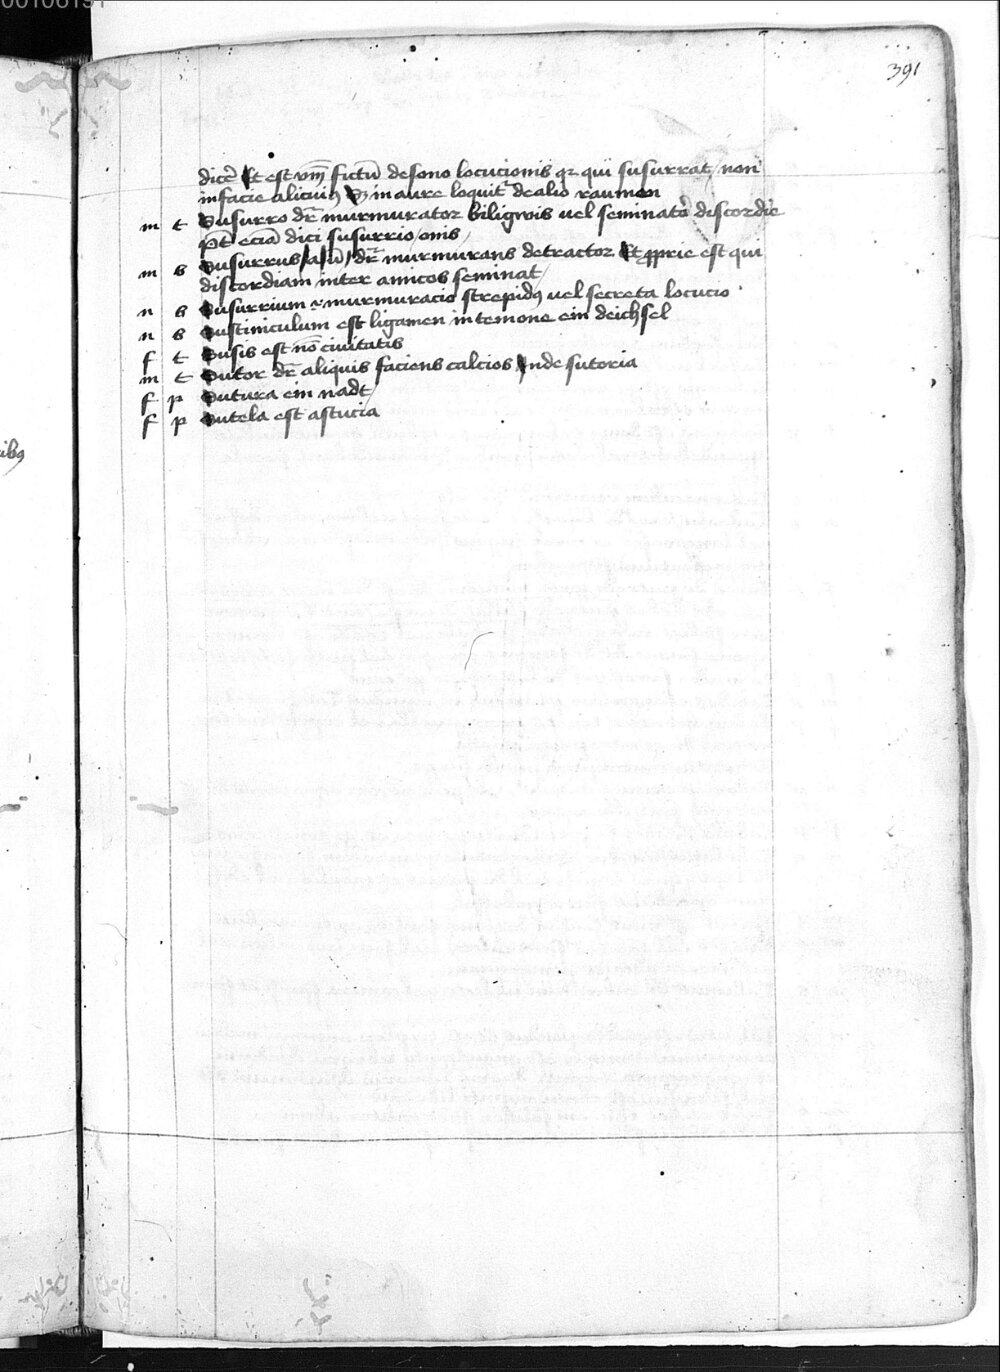 00106191
391
dicere Et est vm̄ fictū de sono locucionis qr qui susurrat / non
in facie alicuiꝰ Sꝫ in aure loquit de alio raumen
m t Susurro dr̄ murmurator biligwis uel seminator discordie
pt̄ eciā dici susurrio / onis /
m s Susurrus / a / ū / dr̄ murmurans detractor Et ꝓprie est qui
discordiam inter amicos seminat /
n s Susurrium murmuracio strepidꝰ uel secreta locucio
n s Sustiniculum est ligamen in temone ein deichsel
f t Susis est nō ciuitatis
m t Sutor dr̄ aliquis faciens calcios Inde sutoria
f p Sutura ein nadt /
f p Sutela est astucia
ibꝰ